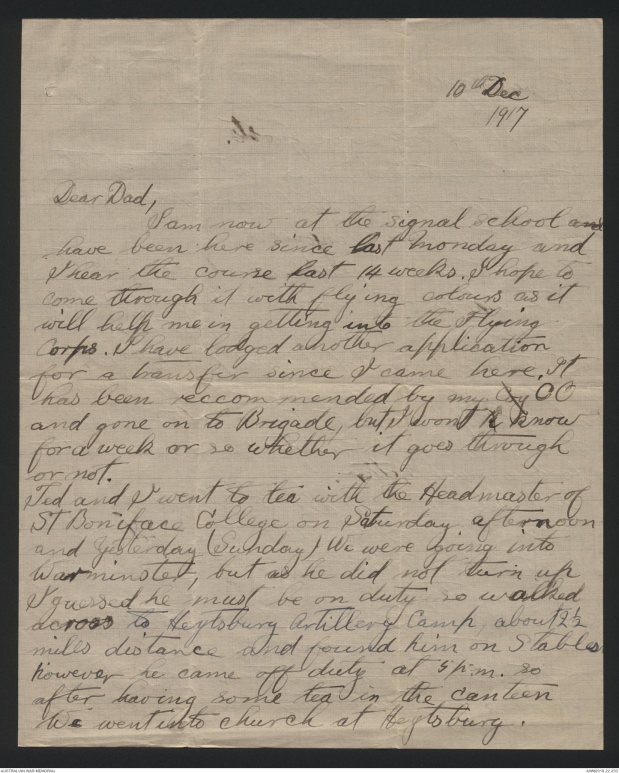 10th Dec
1917
Dear Dad,
I am now at the signal school and
have been here since last Monday and
I hear the course last 14 weeks. I hope to
come through it with flying colours as it
will help me in getting into the Flying
Corps. I have lodged another application
for a transfer since I came here. It
has been reccommended by my Coy OC
and gone on to Brigade, but I wont know
for a week or so whether it goes through
or not.
Ted and I went to tea with the Headmaster of
St Boniface College on Saturday afternoon
and Yesterday (Sunday) We were going into
Warminster, but as he did not turn up
I guessed he must be on duty so walked
across to Heytsbury Artillery Camp about 2½
mills distance and found him on Stables
however he came off duty at 5 p.m. so
after having some tea in the canteen
We went into church at Heytsbury.
AUSTRALIAN WAR MEMORIAL